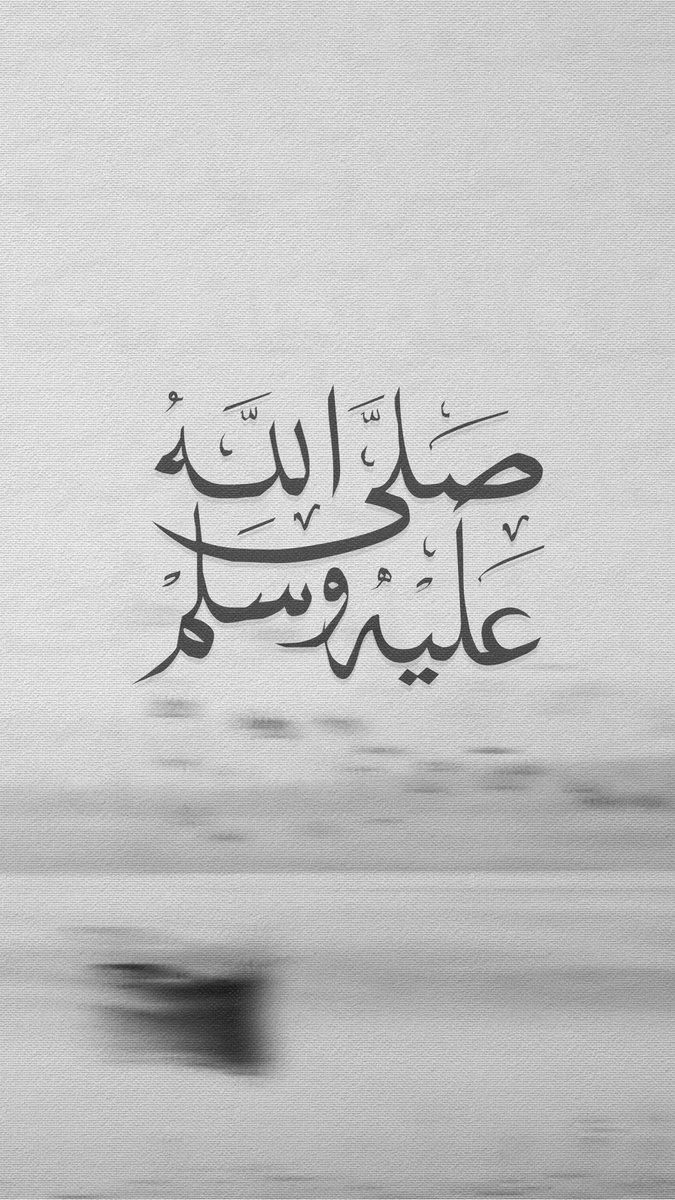 صَلَّى اللَّهُ
عَلَيْهِ وَسَلَّمْ